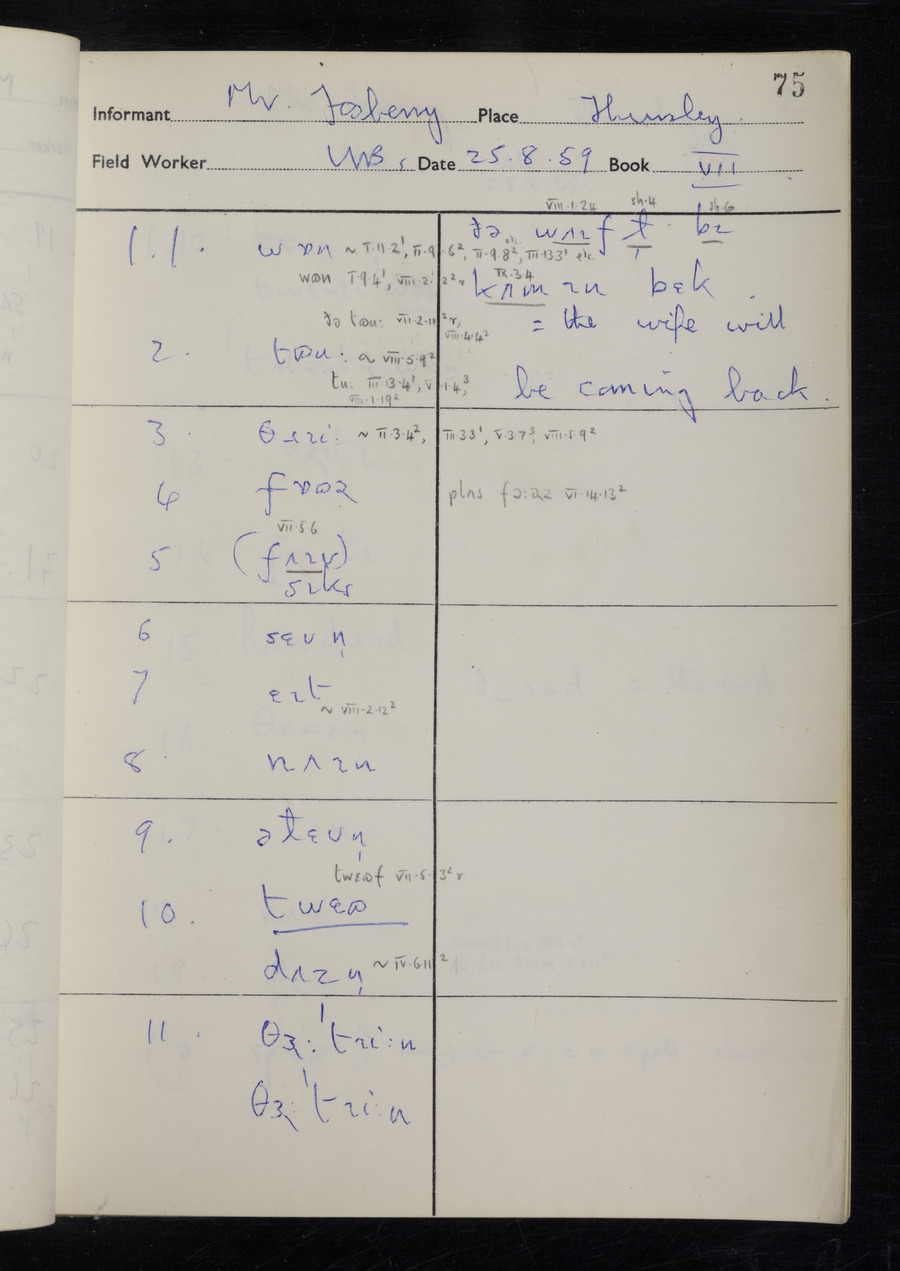 75
Informant Mr. Fosberry Place Thursley
Field Worker WB, Date 25.8.59 Book VII
VIII·1·24 sh·4 sh·6
ðə wʌɪf ɫ bɪ
1.1. wɒn ~ I·11·2¹, II·9·6², II·9·8², III·13·3¹ etc.
wɒn I·9·4¹, VIII·2·2²
IX·3·4
kʌmɪn bɛk
ðə tᵿu: VII·2·11²r, VIII·4·4²
= the wife will
2. tᵿu: ~ VIII·5·9²
tu: III·13·4¹, V·1·4³, VIII·1·19²
be coming back.
3. θɹi: ~ II·3·4², III·3·3¹, V·3·7³, VIII·5·9²
4
plʌs fɔ:ɹz VI·14·13²
VII·5·6
5 (fʌɪv)
sɪks
6 sɛvn̩
7 ɛɪt
~ VIII·2·12²
8 nʌɪn
9. əɫɛvn̩
VII·5·3²r
10.
dʌzn̩ ~ IV·6·11²
11. θɜ:ˈtɹi:n
θɜ:ˈtɹi:n